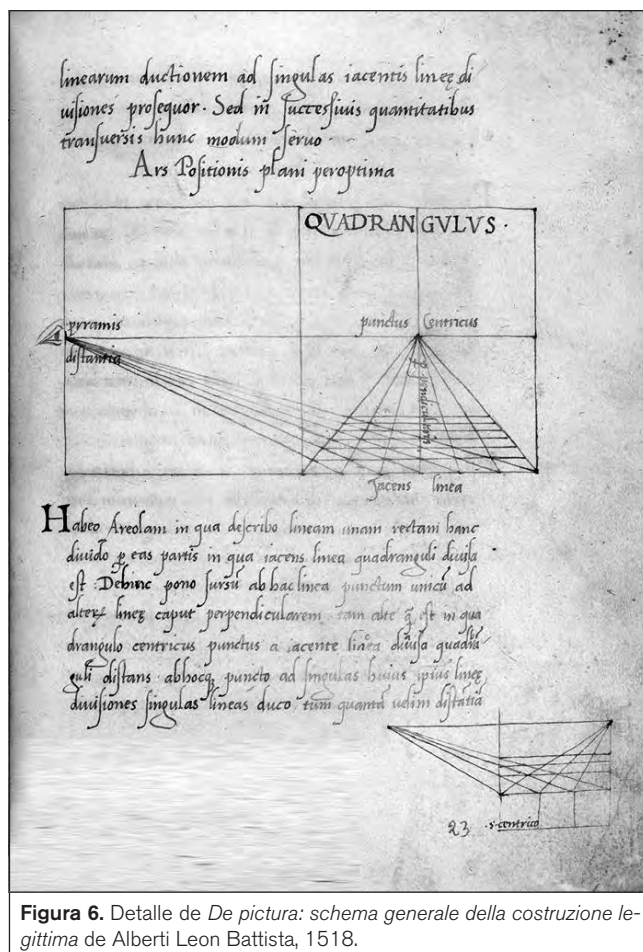 linearum ductionem ad singulas iacentis lineę di
uisiones prosequor. Sed in successiuis quantitatibus
transuersis hunc modum seruo
Ars Positionis plani peroptima
QVADRANGVLVS.
pyramis
punctus Centricus
distantia
perpendicularis
Jacens linea
Habeo Areolam in qua describo lineam unam rectam hanc
diuido p eas partis in qua iacens linea quadranguli diuisa
est. Dehinc pono sursū ab hac linea punctum unicū ad
alterę lineę caput perpendicularem tam alte q̄ est in qua
drangulo centricus punctus a iacente linea diuisa quadrā
guli distans abhocq puncto ad singulas huius ipsius lineę
diuisiones singulas lineas duco tum quantā uelim distātiā
23 .s.centrico
Figura 6. Detalle de De pictura: schema generale della costruzione le-
gittima de Alberti Leon Battista, 1518.